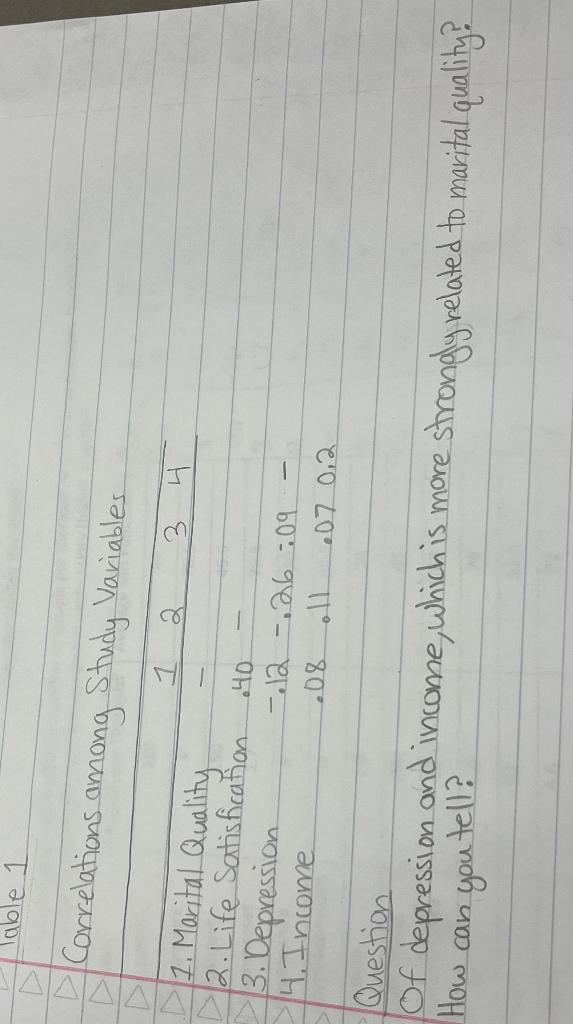 Table 1
Correlations among Study Variables
1 2 3 4
1. Marital Quality -
2. Life Satisfication .40 -
3. Depression -.12 -.26 -.09 -
4. Income .08 .11 .07 0.2
Question
Of depression and income, which is more strongly related to marital quality?
How can you tell?